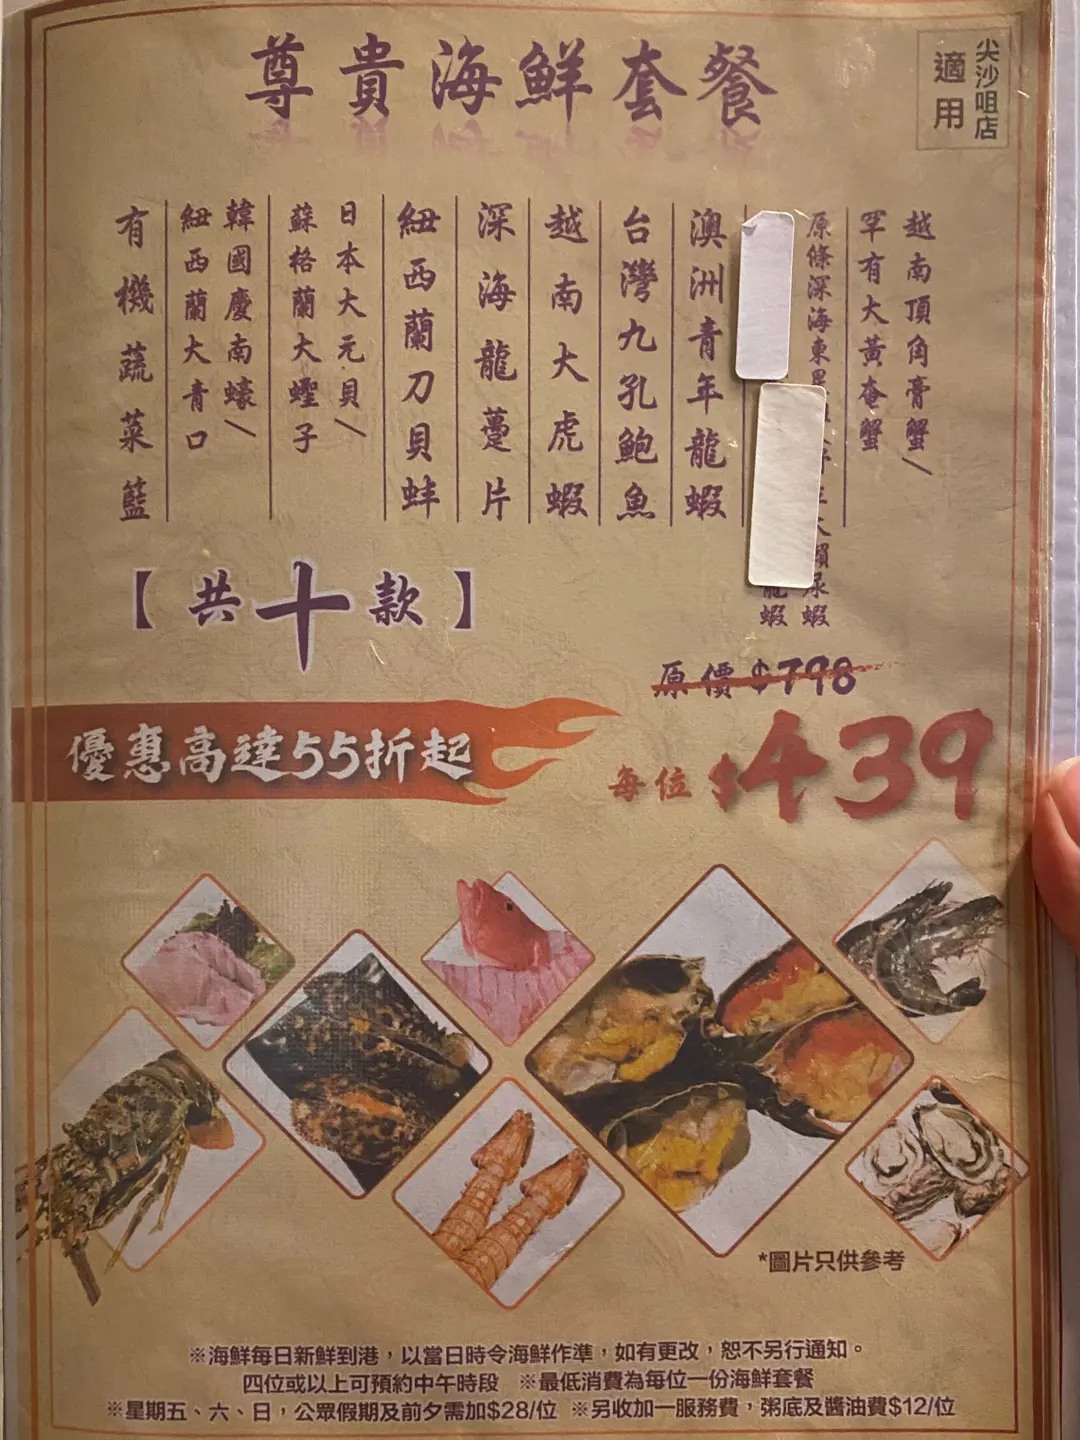 尊貴海鮮套餐
尖沙咀店
適用
越南頂角膏蟹/
罕有大黃奄蟹
原條深海東星
大瀨尿蝦
龍蝦
澳洲青年龍蝦
台灣九孔鮑魚
越南大虎蝦
深海龍躉片
紐西蘭刀貝蚌
日本大元貝/
蘇格蘭大蟶子
韓國慶南蠔/
紐西蘭大青口
有機蔬菜籃
【共十款】
原價$798
優惠高達55折起
每位$439
*圖片只供參考
※海鮮每日新鮮到港，以當日時令海鮮作準，如有更改，恕不另行通知。
四位或以上可預約中午時段 ※最低消費為每位一份海鮮套餐
※星期五、六、日，公眾假期及前夕需加$28/位 ※另收加一服務費，粥底及醬油費$12/位